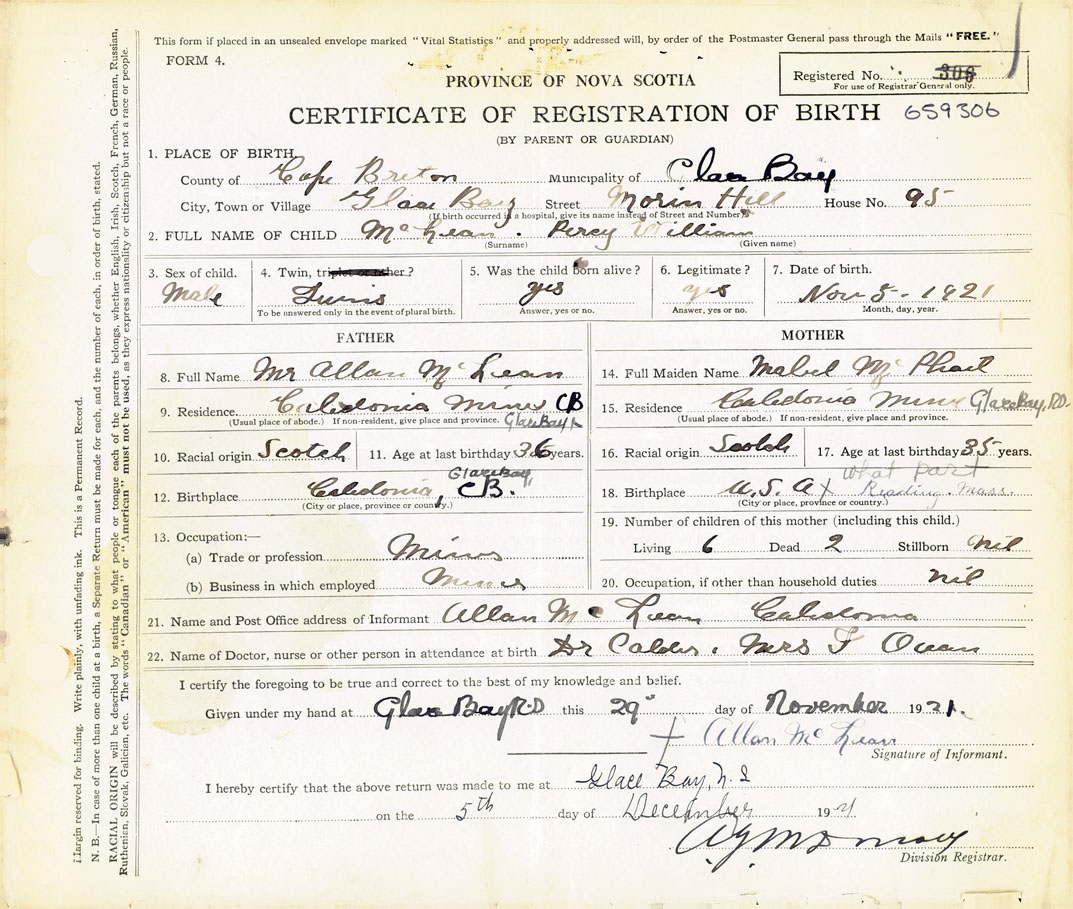 This form if placed in an unsealed envelope marked "Vital Statistics" and properly addressed will, by order of the Postmaster General pass through the Mails "FREE."
FORM 4.
Registered No. 306
For use of Registrar General only.
PROVINCE OF NOVA SCOTIA
CERTIFICATE OF REGISTRATION OF BIRTH 659306
(BY PARENT OR GUARDIAN)
1. PLACE OF BIRTH
County of Cape Breton Municipality of Glace Bay
City, Town or Village Glace Bay Street Morin Hill House No. 95
(If birth occurred in a hospital, give its name instead of Street and Number)
2. FULL NAME OF CHILD McLean. Percy William
(Surname) (Given name)
3. Sex of child. 4. Twin, triplet or other? 5. Was the child born alive? 6. Legitimate? 7. Date of birth.
Male Twins yes yes Nov 5 - 1921
To be answered only in the event of plural birth. Answer, yes or no. Answer, yes or no. Month, day, year.
FATHER
8. Full Name Mr Allan McLean
9. Residence. Caledonia Mines CB
(Usual place of abode.) If non-resident, give place and province. Glace Bay
10. Racial origin Scotch 11. Age at last birthday 36 years.
Glace Bay,
12. Birthplace Caledonia, CB.
(City or place, province or country.)
13. Occupation:—
(a) Trade or profession Miner
(b) Business in which employed Miner
MOTHER
14. Full Maiden Name Mabel McPhail
15. Residence Caledonia Mines Glace Bay, R.D.
(Usual place of abode.) If non-resident, give place and province.
16. Racial origin Scotch 17. Age at last birthday 35 years.
what part
18. Birthplace U.S.A x Reading. Mass.
(City or place, province or country.)
19. Number of children of this mother (including this child.)
Living 6 Dead 2 Stillborn Nil
20. Occupation, if other than household duties Nil
21. Name and Post Office address of Informant Allan McLean Caledonia
22. Name of Doctor, nurse or other person in attendance at birth Dr Calder. Mrs F
I certify the foregoing to be true and correct to the best of my knowledge and belief.
Given under my hand at Glace Bay R.D this 29" day of November 1921.
Allan McLean
Signature of Informant.
I hereby certify that the above return was made to me at Glace Bay, N.S
on the 5th day of December 1921
Division Registrar.
Margin reserved for binding. Write plainly, with unfading ink. This is a Permanent Record.
N. B.—In case of more than one child at a birth, a Separate Return must be made for each, and the number of each, in order of birth, stated.
RACIAL ORIGIN will be described by stating to what people or tongue each of the parents belongs, whether English, Irish, Scotch, French, German, Russian,
Ruthenien, Slovak, Galician, etc. The words "Canadian" or "American" must not be used, as they express nationality or citizenship but not a race or people.